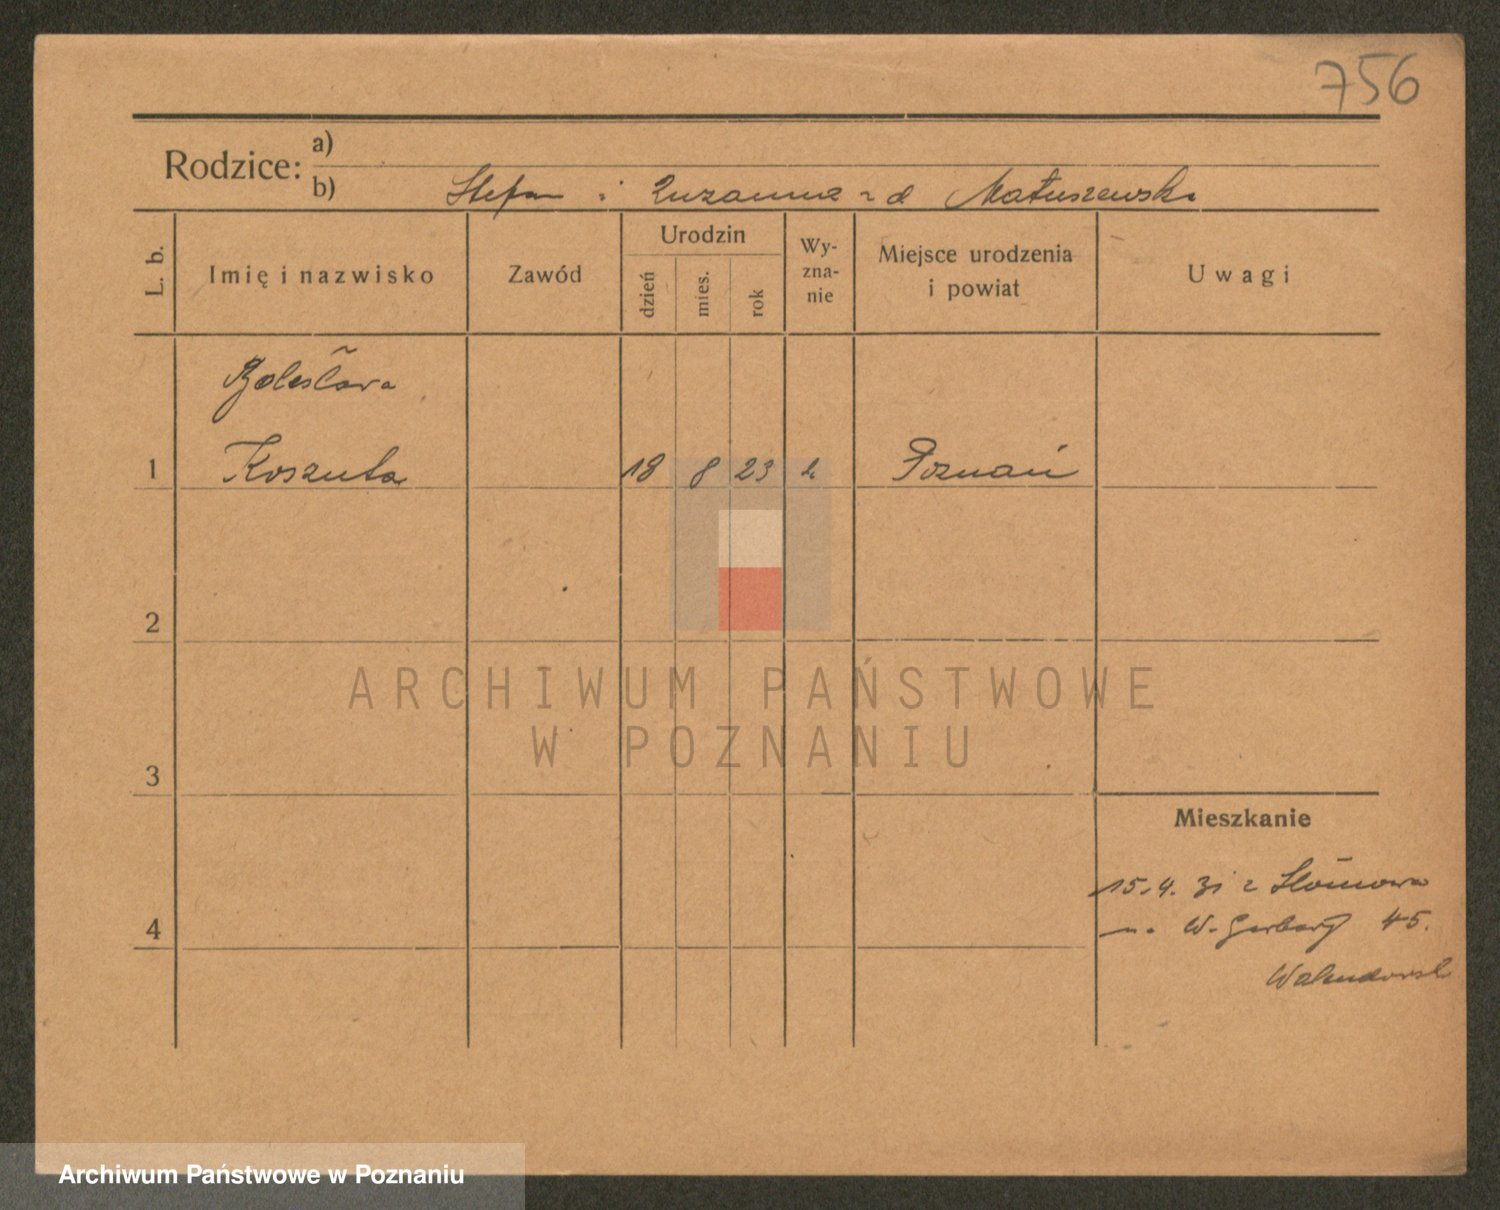 756
Rodzice:
a)
b) Stefan i Zuzanna z d Matuszewski
L. b.
Imię i nazwisko
Zawód
Urodzin
dzień
mies.
rok
Wy-
zna-
nie
Miejsce urodzenia
i powiat
Uwagi
Bolesława
1 Koszuta 18 8 23 Poznań
2
3
4
Mieszkanie
15.4. 31 z
W. Garbary 45.
ARCHIWUM PAŃSTWOWE
W POZNANIU
Archiwum Państwowe w Poznaniu